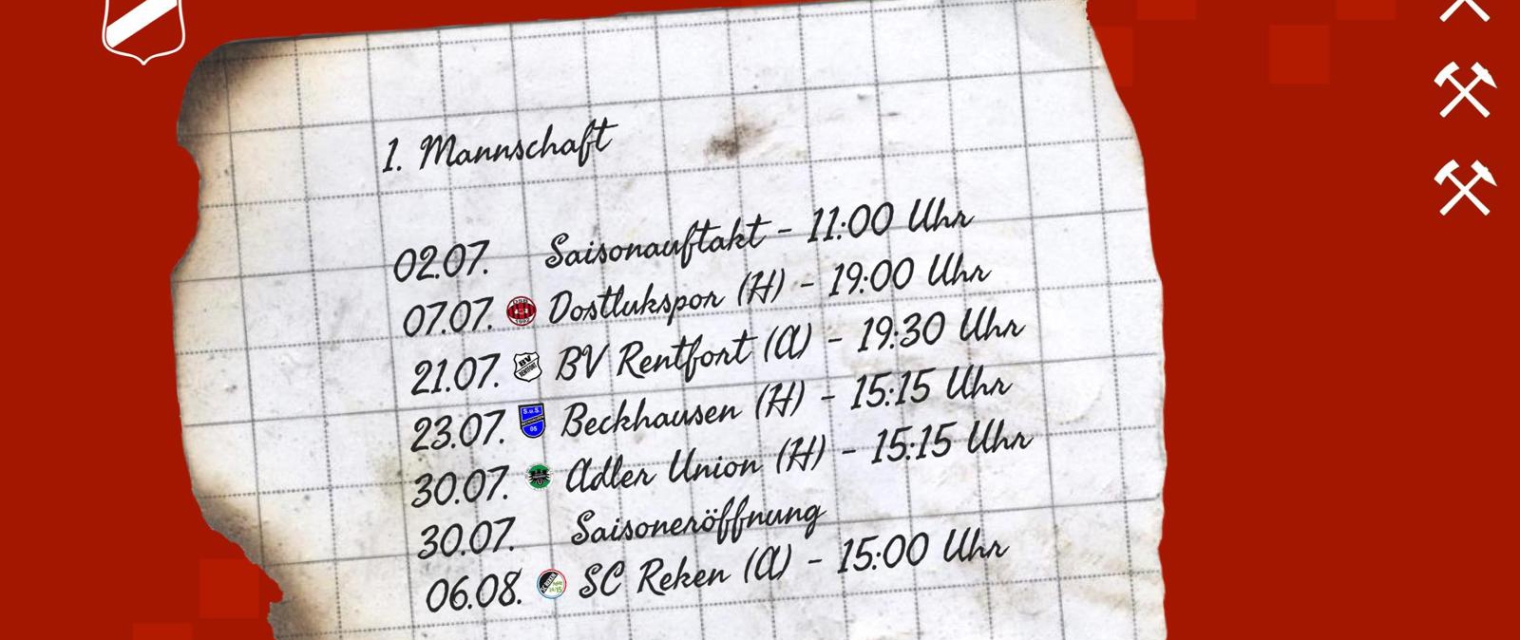 1. Mannschaft
02.07. Saisonauftakt - 11:00 Uhr
07.07. Dostlukspor (H) - 19:00 Uhr
21.07. BV Rentfort (A) - 19:30 Uhr
23.07. Beckhausen (H) - 15:15 Uhr
30.07. Adler Union (H) - 15:15 Uhr
30.07. Saisoneröffnung
06.08. SC Reken (A) - 15:00 Uhr